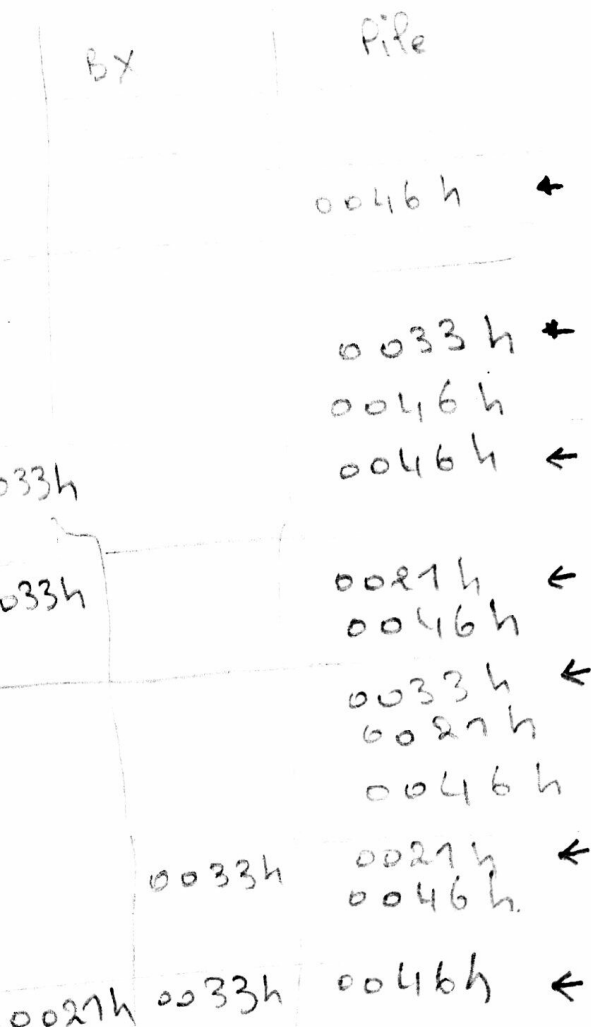 BX Pile
0046h ←
0033h ←
0046h
033h 0046h ←
033h 0021h ←
0046h
0033h ←
0021h
0046h
0033h 0021h ←
0046h.
0021h 0033h 0046h ←